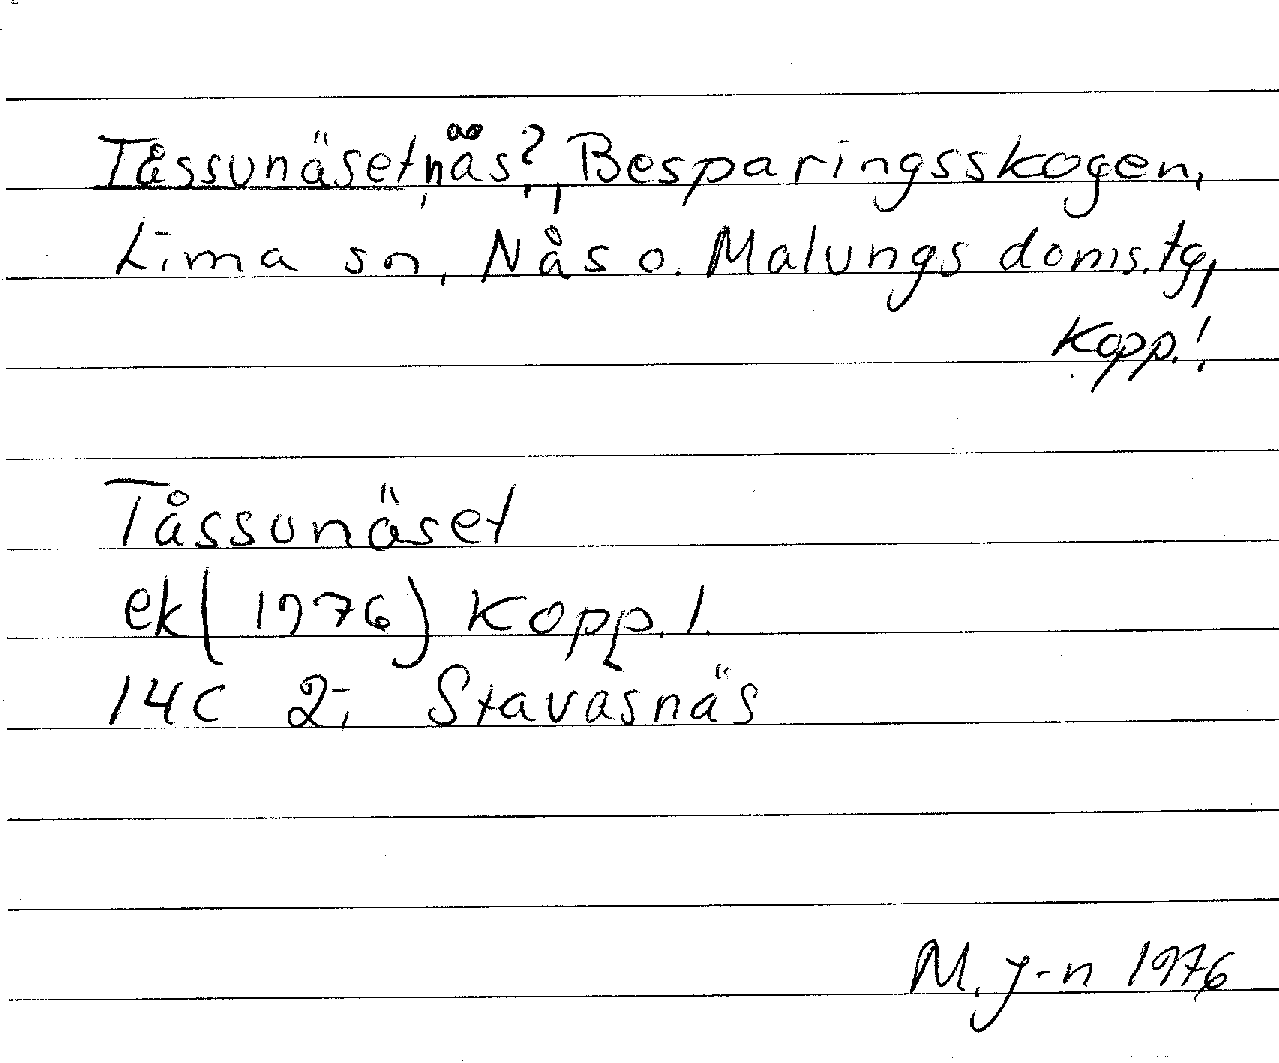 Tåssunäset, näs?, Besparingsskogen,
Lima sn, Nås o. Malungs doms.tg,
Kopp. l.
Tåssunäset
ek (1976) Kopp. l.
14C 2; Stavasnäs
M. J-n 1976